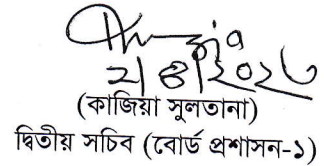 ২/৪/২০২৬
(কাজিয়া সুলতানা)
দ্বিতীয় সচিব (বোর্ড প্রশাসন-১)